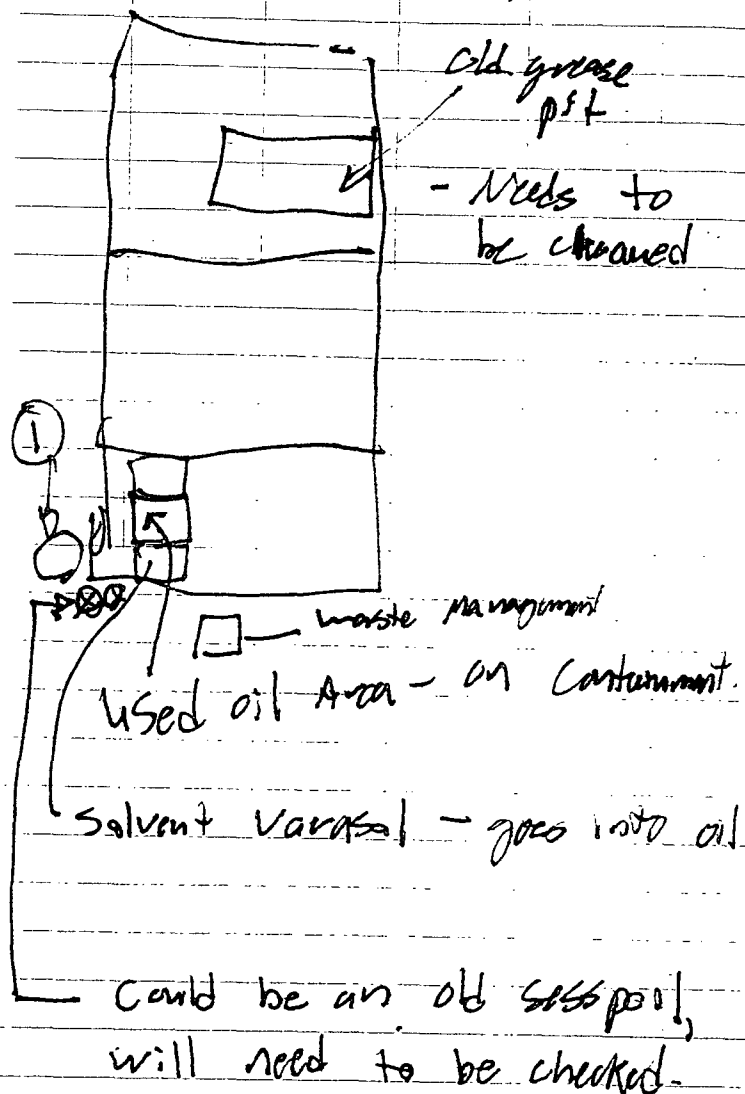 Old grease
pit
- Needs to
be cleaned
1
waste Management
used oil Area - on Containment.
Solvent Varasol - goes into oil
Could be an old sesspool,
will need to be checked.